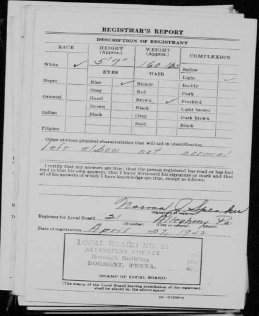 REGISTRAR'S REPORT
DESCRIPTION OF REGISTRANT
RACE HEIGHT (Approx.) WEIGHT (Approx.) COMPLEXION
5' 7" 160 lbs
White ✓ Sallow
EYES HAIR Light ✓
Negro Blue ✓ Blonde Ruddy
Gray Red Dark
Oriental Hazel Brown ✓ Freckled
Brown Black Light brown
Indian Black Gray Dark brown
Bald Black
Filipino
Other obvious physical characteristics that will aid in identification
Left elbow not normal
I certify that my answers are true; that the person registered has read or has had
read to him his own answers; that I have witnessed his signature or mark and that
all of his answers of which I have knowledge are true, except as follows:
Registrar for Local Board 21 Allegheny Pa.
(Number) (City or county) (State)
Date of registration April 27 1942
LOCAL BOARD NO. 21
ALLEGHENY COUNTY
Borough Building
DORMONT, PENNA.
(STAMP OF LOCAL BOARD)
(The stamp of the Local Board having jurisdiction of the registrant
shall be placed in the above space)